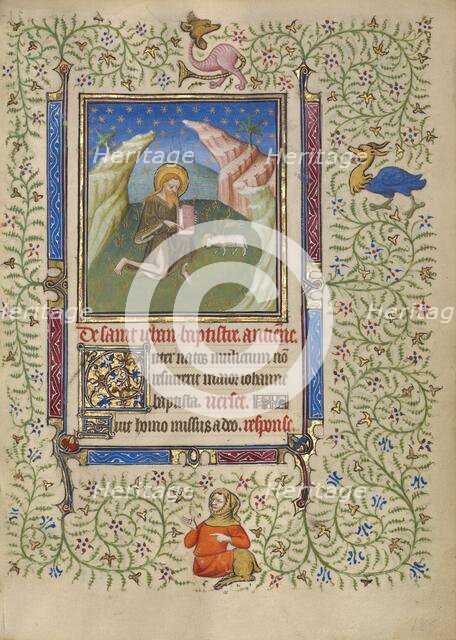 Heritage Heritage
Heritage Heritage
De saint iehan baptistre. antiene.
Inter natos mulierum nō
resurrexit maior iohanne
baptista. verset.
Fuit homo missus a deo. response.
Heritage Heritage